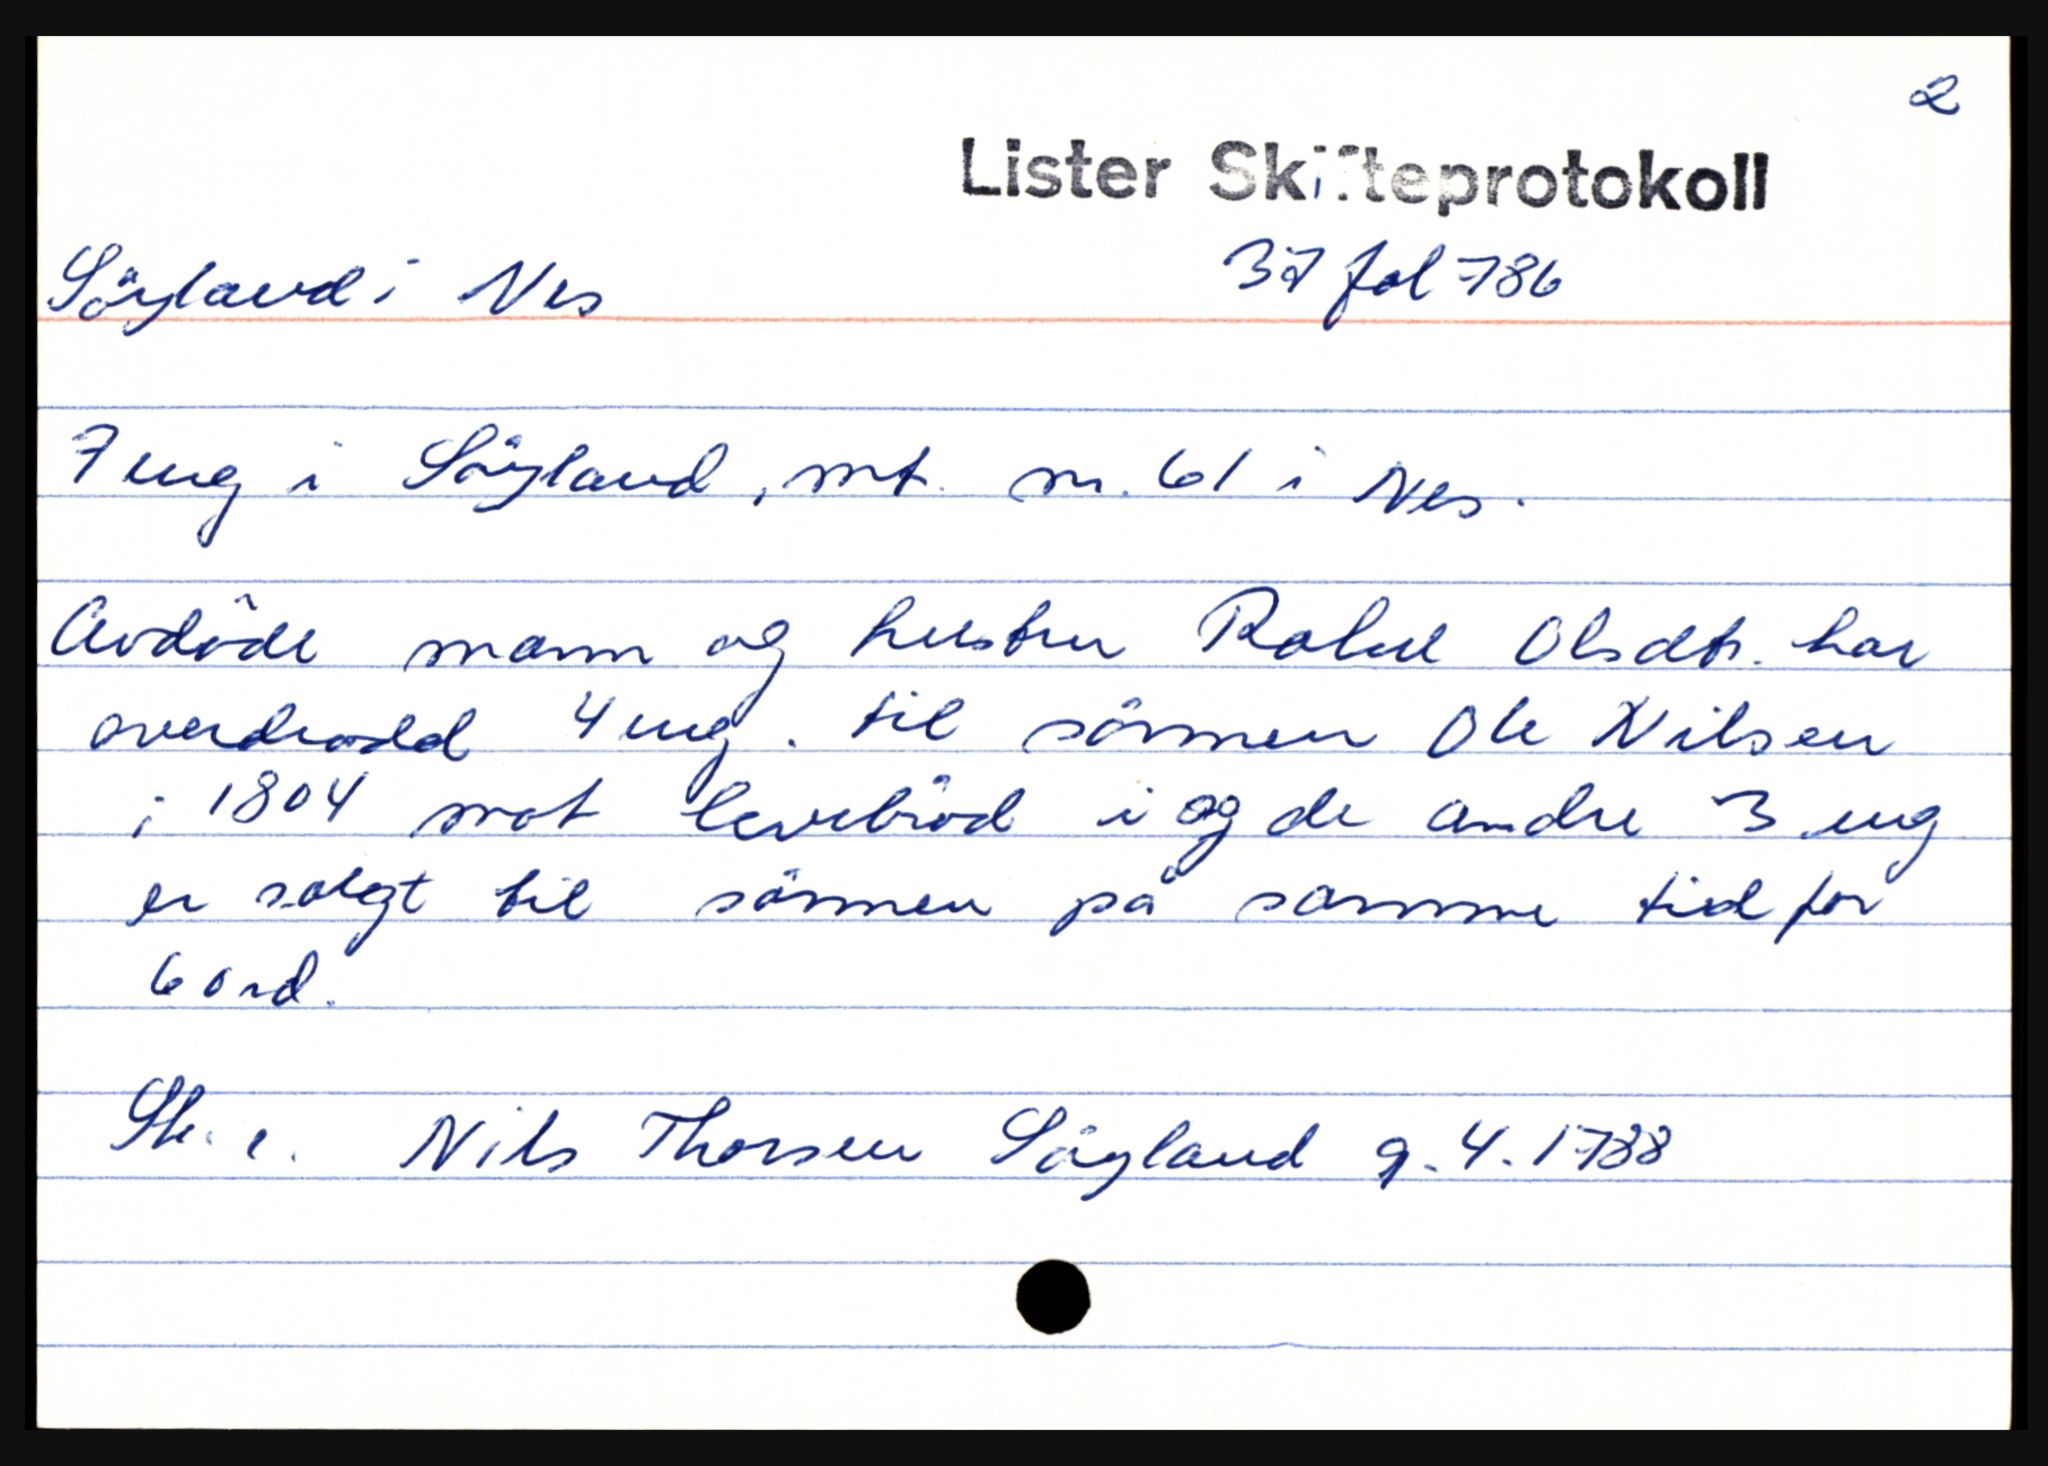 2
Lister Skifteprotokoll
Söyland i Nes 37 fol 786
7 eng i Söyland, mt. nr. 61 i Nes.
Avdöde mann og hustru Rakel Olsdtr. har
overdradd 4 eng. til sönnen Ole Nilsen
i 1804 mot levebröd i og de andre 3 eng
er solgt til sönnen på samme tid for
60 rd.
Sk. e. Nils Thorsen Söyland 9.4.1788